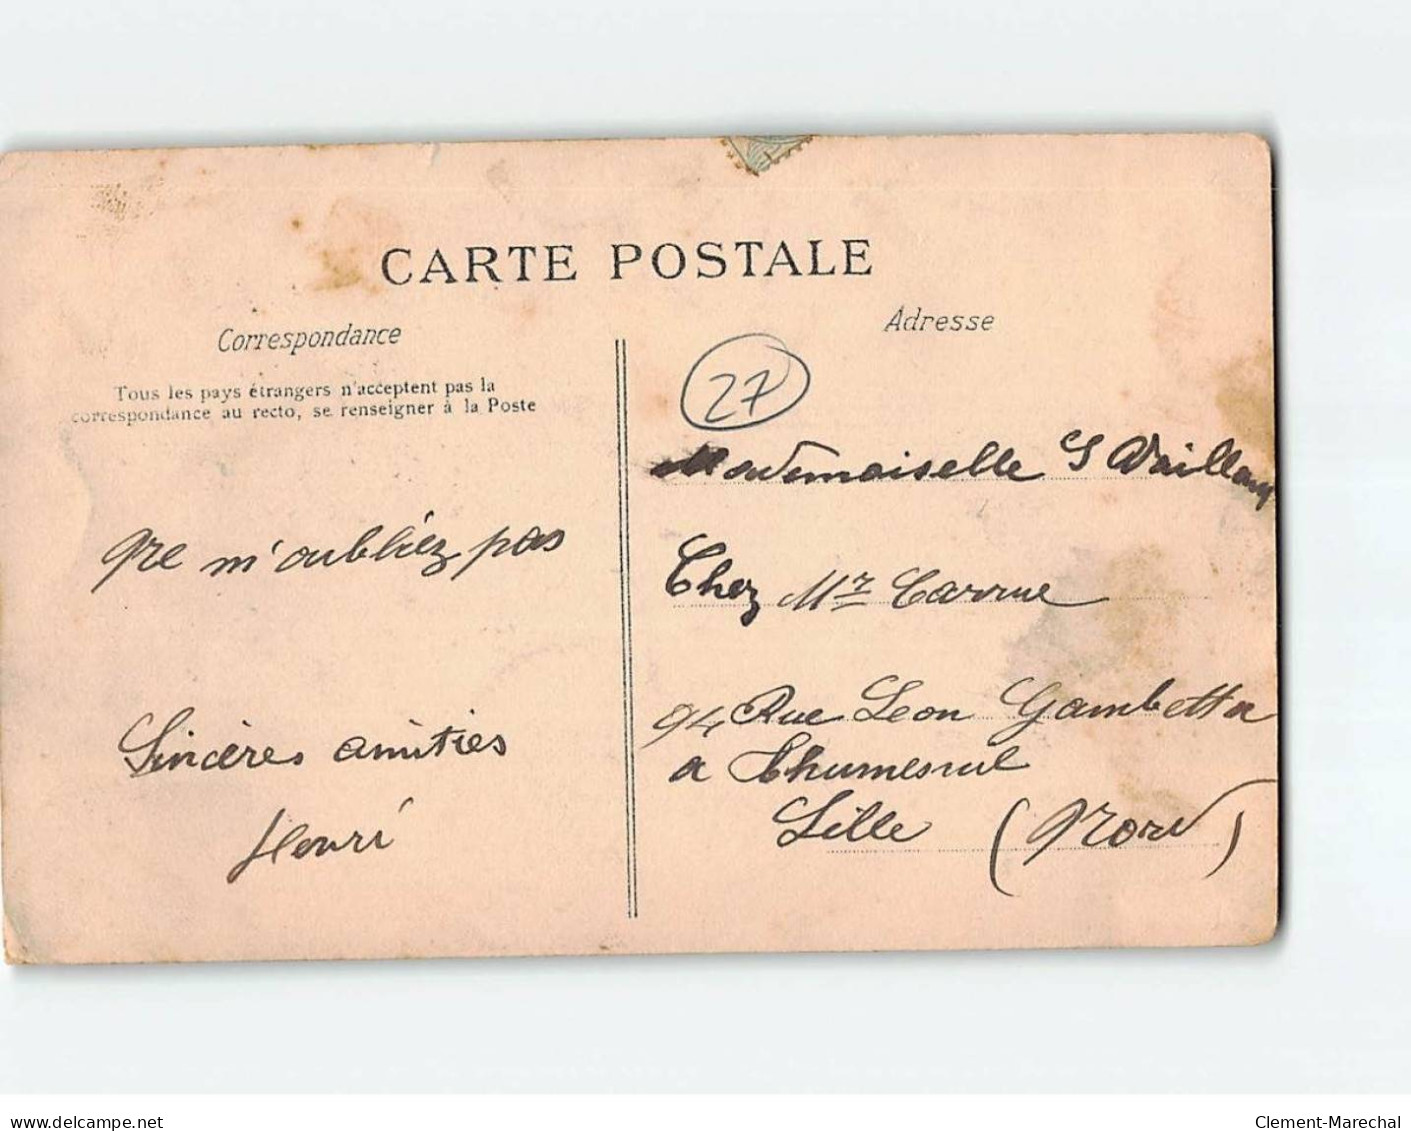 CARTE POSTALE
Correspondance
Tous les pays étrangers n'acceptent pas la
correspondance au recto, se renseigner à la Poste
Ne m'oubliez pas
Sincères amitiés
Henri
Adresse
27
Mademoiselle S Vaillant
Chez Mr Carrue
94 Rue Leon Gambetta
a Thumesnil
Lille (Nord)
www.delcampe.net
Clement-Marechal